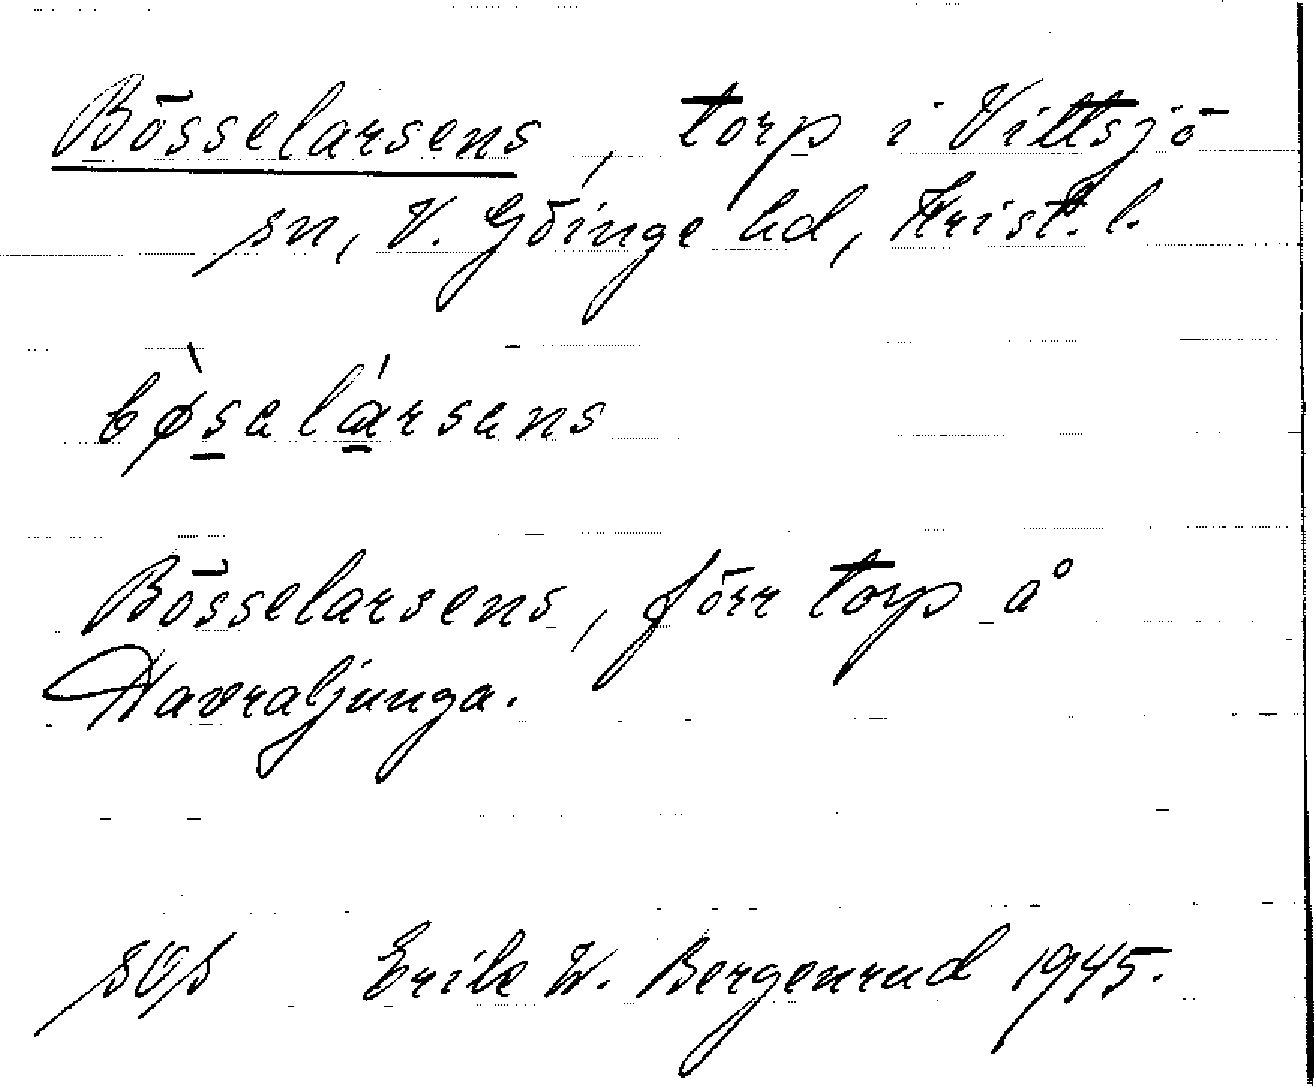 Bösselarsens, torp i Vittsjö
sn, V. Göinge hd, Krist. l.
bø̀selársens
Bösselarsens, förr torp å
Havraljunga.
sop Erik W. Bergenrud 1945.